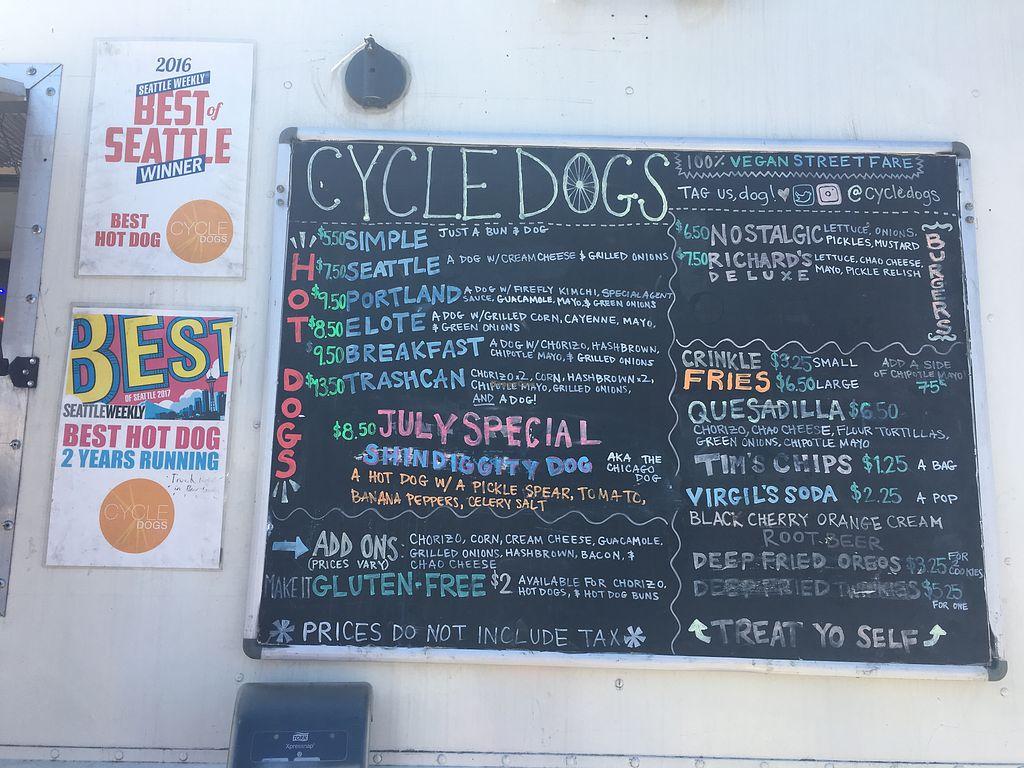 2016
SEATTLE WEEKLY
BEST of
SEATTLE
WINNER
BEST
HOT DOG
CYCLE
DOGS
BEST
OF SEATTLE 2017
SEATTLEWEEKLY
BEST HOT DOG
2 YEARS RUNNING
CYCLE
DOGS
CYCLE DOGS
HOT DOGS
$5.50 SIMPLE JUST A BUN & DOG
$7.50 SEATTLE A DOG W/CREAM CHEESE & GRILLED ONIONS
$9.50 PORTLAND A DOG W/ FIREFLY KIMCHI, SPECIAL AGENT
SAUCE, GUACAMOLE, MAYO, & GREEN ONIONS
$8.50 ELOTÉ A DOG W/GRILLED CORN, CAYENNE, MAYO,
& GREEN ONIONS
$9.50 BREAKFAST A DOG W/CHORIZO, HASHBROWN,
CHIPOTLE MAYO, & GRILLED ONIONS
$13.50 TRASHCAN CHORIZO x2, CORN, HASHBROWN x2,
CHIPOTLE MAYO, GRILLED ONIONS,
AND A DOG!
$8.50 JULY SPECIAL
SHINDIGGITY DOG AKA THE
CHICAGO
DOG
A HOT DOG W/ A PICKLE SPEAR, TOMATO,
BANANA PEPPERS, CELERY SALT
ADD ONS: CHORIZO, CORN, CREAM CHEESE, GUACAMOLE,
(PRICES VARY) GRILLED ONIONS, HASHBROWN, BACON, &
CHAO CHEESE
MAKE IT GLUTEN-FREE $2 AVAILABLE FOR CHORIZO,
HOT DOGS, & HOT DOG BUNS
* PRICES DO NOT INCLUDE TAX *
100% VEGAN STREET FARE
TAG US, dog! @cycledogs
BURGERS
$6.50 NOSTALGIC LETTUCE, ONIONS,
PICKLES, MUSTARD
$7.50 RICHARD'S LETTUCE, CHAO CHEESE,
DELUXE MAYO, PICKLE RELISH
CRINKLE $3.25 SMALL
FRIES $6.50 LARGE
ADD A SIDE
OF CHIPOTLE MAYO!
75¢
QUESADILLA $6.50
CHORIZO, CHAO CHEESE, FLOUR TORTILLAS,
GREEN ONIONS, CHIPOTLE MAYO
TIM'S CHIPS $1.25 A BAG
VIRGIL'S SODA $2.25 A POP
BLACK CHERRY ORANGE CREAM
ROOT BEER
DEEP FRIED OREOS $3.25 FOR
2 COOKIES
DEEP FRIED $5.25
FOR ONE
TREAT YO SELF
TORK
Xpressnap